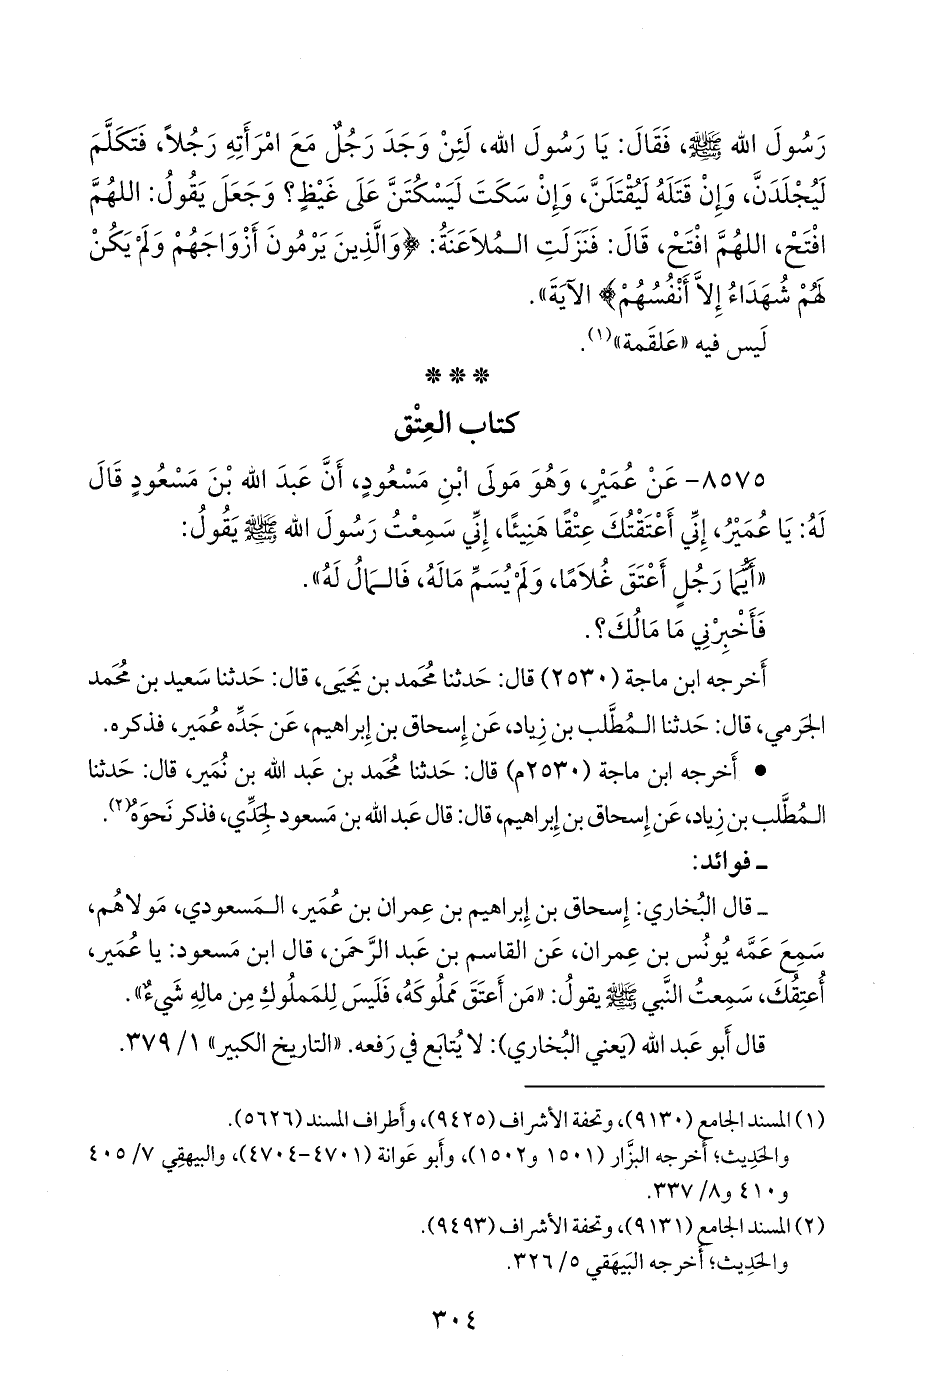 رَسُولَ الله ﷺ، فَقَالَ: يَا رَسُولَ الله، لَئِنْ وَجَدَ رَجُلٌ مَعَ امْرَأَتِهِ رَجُلاً، فَتَكَلَّمَ
لَيُجْلَدَنَّ، وَإِنْ قَتَلَهُ لَيُقْتَلَنَّ، وَإِنْ سَكَتَ لَيَسْكُتَنَّ عَلَى غَيْظٍ؟ وَجَعَلَ يَقُولُ: اللهُمَّ
افْتَحْ، اللهُمَّ افْتَحْ، قَالَ: فَنَزَلَتِ الـمُلاَعَنَةُ: ﴿وَالَّذِينَ يَرْمُونَ أَزْوَاجَهُمْ وَلَمْ يَكُنْ
لَهُمْ شُهَدَاءُ إِلاَّ أَنْفُسُهُمْ﴾ الآيَةَ».
لَيس فيه «عَلقَمة»(١).
* * *
كتاب العِتْق
٨٥٧٥- عَنْ عُمَيْرٍ، وَهُوَ مَولَى ابْنِ مَسْعُودٍ، أَنَّ عَبدَ الله بْنَ مَسْعُودٍ قَالَ
لَهُ: يَا عُمَيْرُ، إِنِّي أَعْتَقْتُكَ عِتْقًا هَنِيئًا، إِنِّي سَمِعْتُ رَسُولَ الله ﷺ يَقُولُ:
«أَيُّمَا رَجُلٍ أَعْتَقَ غُلاَمًا، وَلَمْ يُسَمِّ مَالَهُ، فَالـمَالُ لَهُ».
فَأَخْبِرْنِي مَا مَالُكَ؟.
أَخرجه ابن ماجة (٢٥٣٠) قال: حَدثنا مُحَمد بن يَحيَى، قال: حَدثنا سَعيد بن مُحَمد
الجَرمي، قال: حَدثنا الـمُطَّلب بن زِياد، عَن إِسحاق بن إِبراهيم، عَن جَدِّه عُمَير، فذكره.
• أَخرجه ابن ماجة (٢٥٣٠م) قال: حَدثنا مُحَمد بن عَبد الله بن نُمَير، قال: حَدثنا
الـمُطَّلب بن زِياد، عَن إِسحاق بن إِبراهيم، قال: قال عَبد الله بن مَسعود لِجَدِّي، فذكر نَحوَهُ(٢).
ـ فوائد:
ـ قال البُخاري: إِسحاق بن إِبراهيم بن عِمران بن عُمَير، الـمَسعودي، مَولاهُم،
سَمِعَ عَمَّه يُونُس بن عِمران، عَن القاسم بن عَبد الرَّحمَن، قال ابن مَسعود: يا عُمَير،
أُعتِقُكَ، سَمِعتُ النَّبي ﷺ يقولُ: «مَن أَعتَقَ مَملُوكَهُ، فَلَيسَ لِلمَملُوكِ مِن مالِهِ شَيءٌ».
قال أَبو عَبد الله (يَعني البُخاري): لا يُتابَع في رَفعه. «التاريخ الكبير» ١/ ٣٧٩.
(١) المسند الجامع (٩١٣٠)، وتحفة الأشراف (٩٤٢٥)، وأَطراف المسند (٥٦٢٦).
والحَدِيث؛ أَخرجه البزَّار (١٥٠١ و١٥٠٢)، وأَبو عَوانة (٤٧٠١-٤٧٠٤)، والبيهقِي ٧/ ٤٠٥
و٤١٠ و٨/ ٣٣٧.
(٢) المسند الجامع (٩١٣١)، وتحفة الأشراف (٩٤٩٣).
والحَدِيث؛ أَخرجه البَيهَقي ٥/ ٣٢٦.
٣٠٤